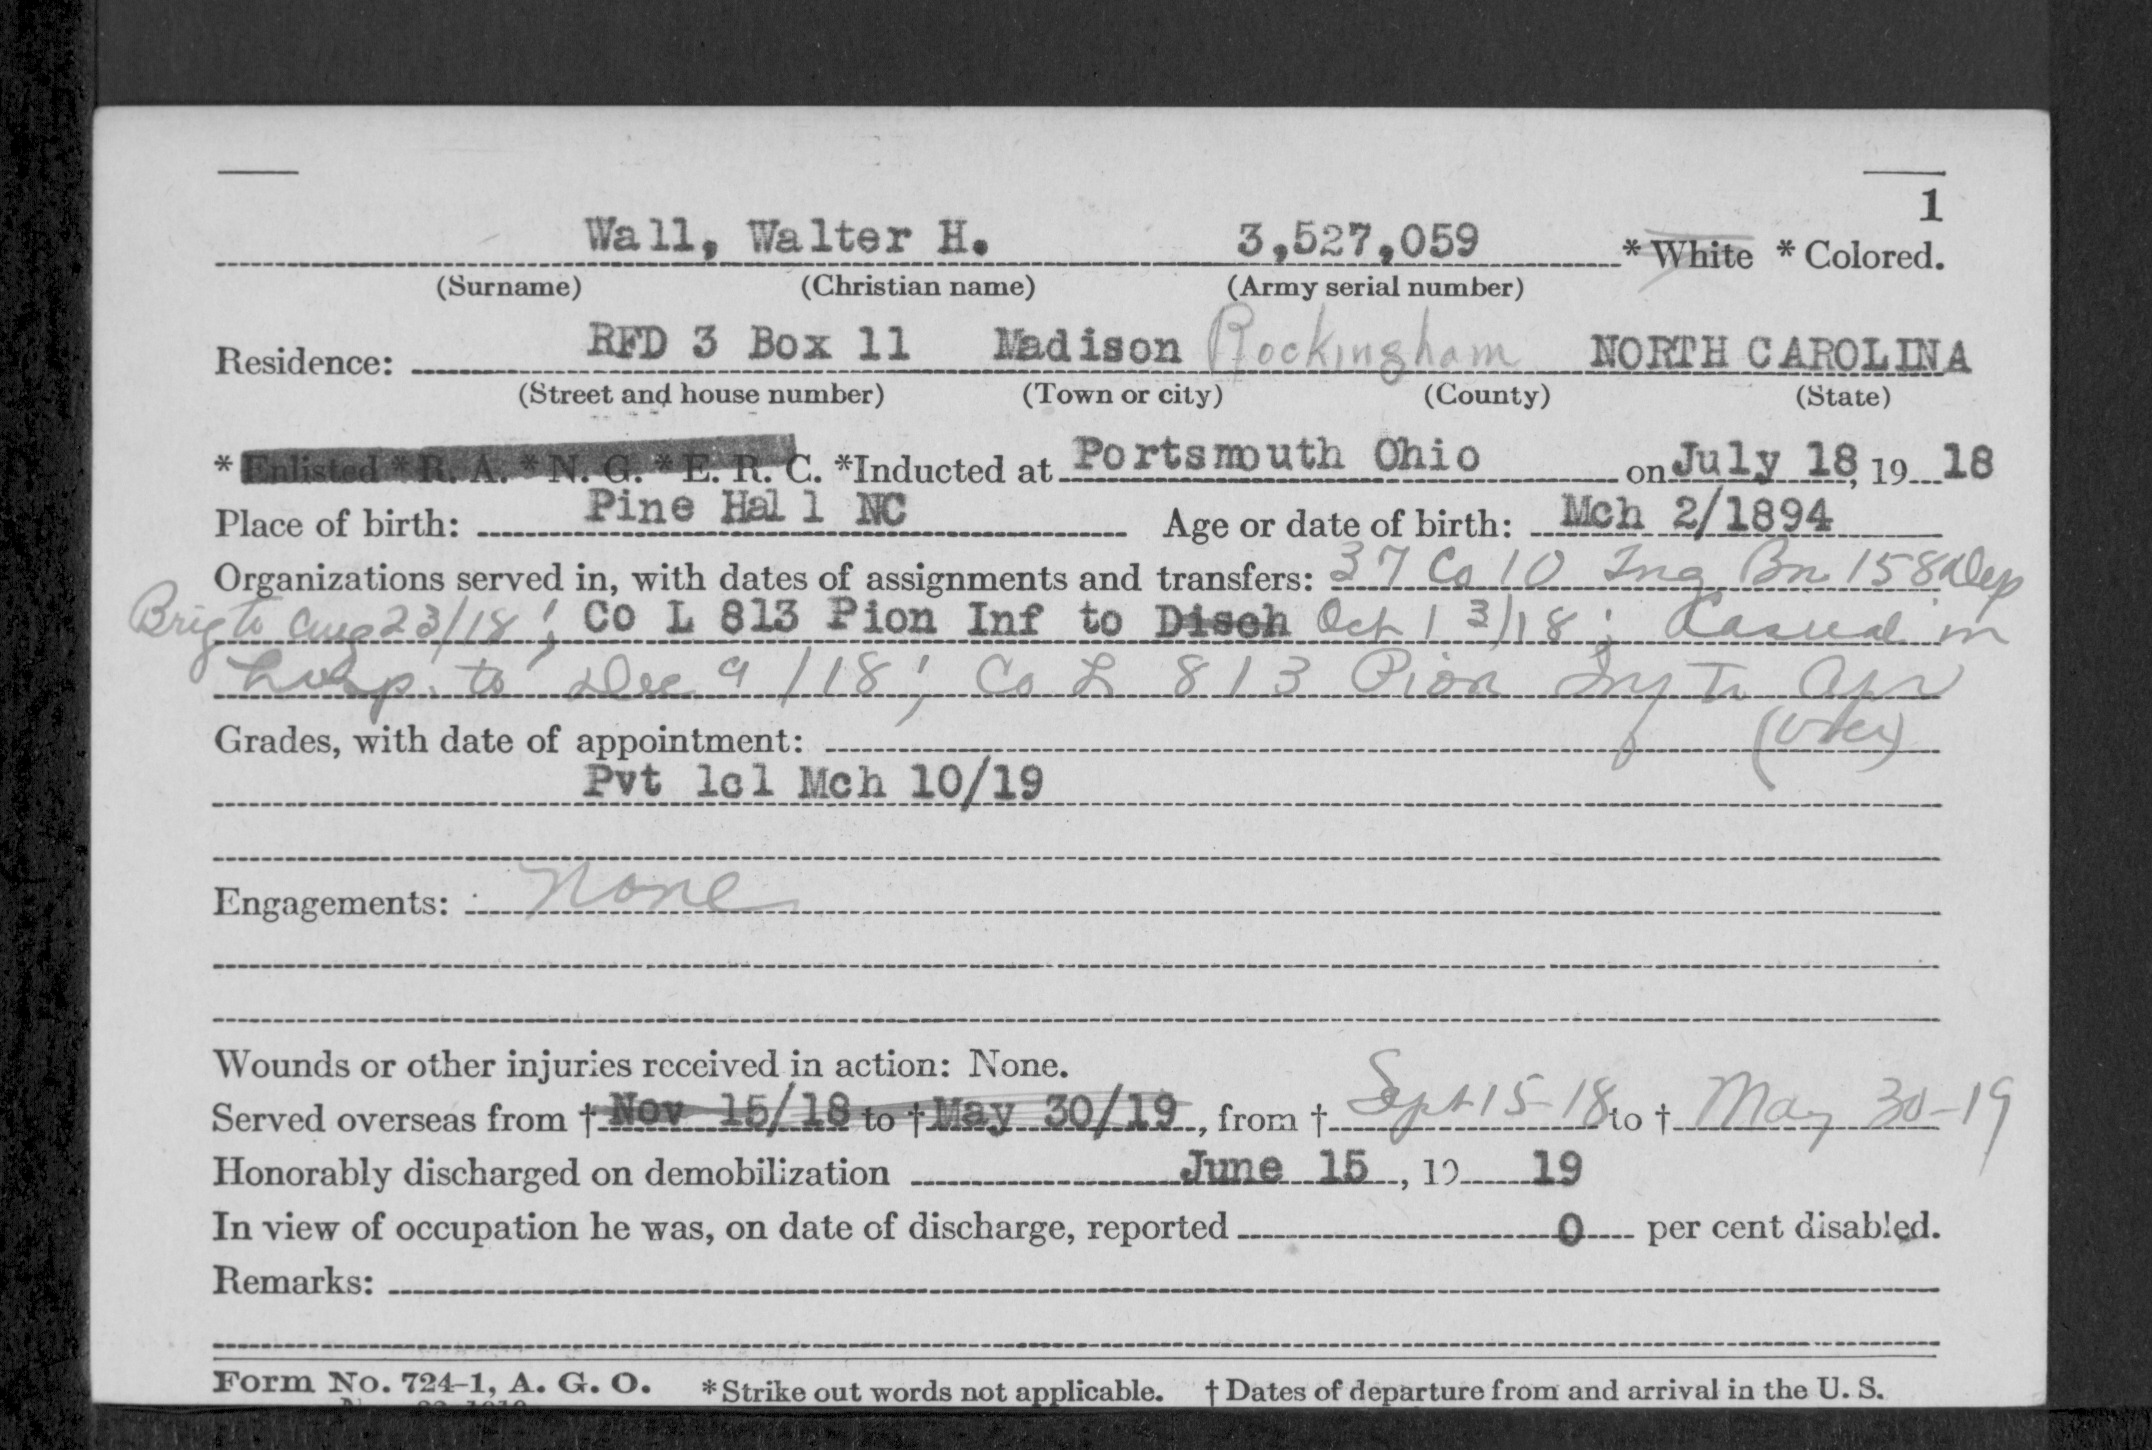 1
Wall, Walter H. 3,527,059 * White * Colored.
(Surname) (Christian name) (Army serial number)
Residence: RFD 3 Box 11 Madison Rockingham NORTH CAROLINA
(Street and house number) (Town or city) (County) (State)
* Enlisted * R. A. * N. G. * E. R. C. *Inducted at Portsmouth Ohio on July 18, 19 18
Place of birth: Pine Hall NC Age or date of birth: Mch 2/1894
Organizations served in, with dates of assignments and transfers: 37 Co 10 Tng Bn 158 Dep
Brig to Aug 23/18; Co L 813 Pion Inf to Disch Oct 13/18; Casual in
hosp. to Dec 9/18; Co L 813 Pion Inf to Apr
(over)
Grades, with date of appointment:
Pvt 1cl Mch 10/19
Engagements: None
Wounds or other injuries received in action: None.
Served overseas from † Nov 15/18 to † May 30/19, from † Sept 15-18 to † May 30-19
Honorably discharged on demobilization June 15, 19 19
In view of occupation he was, on date of discharge, reported 0 per cent disabled.
Remarks:
Form No. 724-1, A. G. O. * Strike out words not applicable. † Dates of departure from and arrival in the U. S.